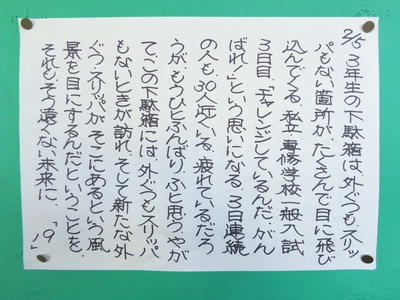 2/5 3年生の下駄箱は、外ぐつもスリッ
パもない箇所が、たくさんで目に飛び
込んでくる。私立・専修学校一般入試
3日目。「チャレンジしているんだ。がん
ばれ。」という思いになる。3日連続
の人も、30人近くいる。疲れているだろ
うが、もうひとふんばり。ふと思う。やが
てこの下駄箱には、外ぐつもスリッパ
もないときが訪れ、そして新たな外
ぐつ、スリッパが、そこにあるという風
景を目にするんだということを。
それも、そう遠くない未来に。